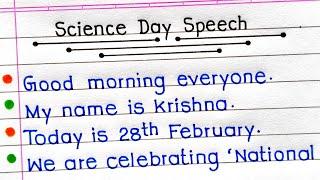 Science Day Speech
Good morning everyone.
My name is Krishna.
Today is 28th February.
We are celebrating 'National